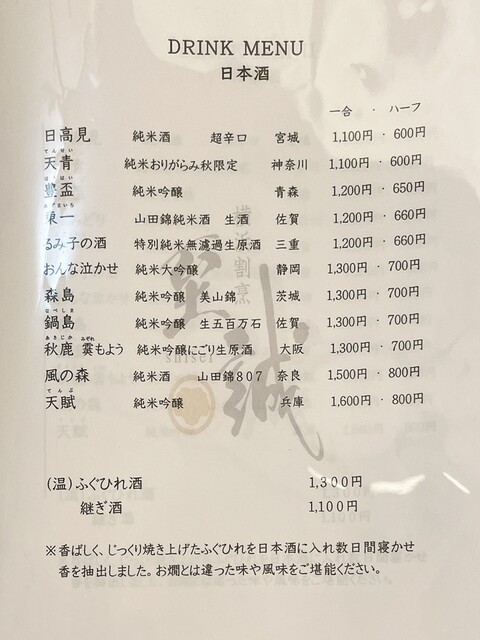 DRINK MENU
日本酒
一合 ・ ハーフ
日高見 純米酒 超辛口 宮城 1,100円 ・ 600円
てんせい
天青 純米おりがらみ秋限定 神奈川 1,100円 ・ 600円
ほうはい
豊盃 純米吟醸 青森 1,200円 ・ 650円
あづまいち
東一 山田錦純米酒 生酒 佐賀 1,200円 ・ 660円
るみ子の酒 特別純米無濾過生原酒 三重 1,200円 ・ 660円
おんな泣かせ 純米大吟醸 静岡 1,300円 ・ 700円
森島 純米吟醸 美山錦 茨城 1,300円 ・ 700円
なべしま
鍋島 純米吟醸 生五百万石 佐賀 1,300円 ・ 700円
あきしか みぞれ
秋鹿 霙もよう 純米吟醸にごり生原酒 大阪 1,300円 ・ 700円
風の森 純米酒 山田錦807 奈良 1,500円 ・ 800円
てんぶ
天賦 純米吟醸 兵庫 1,600円 ・ 800円
横浜割烹
至誠
shisei
(温)ふぐひれ酒 1,300円
継ぎ酒 1,100円
※香ばしく、じっくり焼き上げたふぐひれを日本酒に入れ数日間寝かせ
香を抽出しました。お燗とは違った味や風味をご堪能ください。